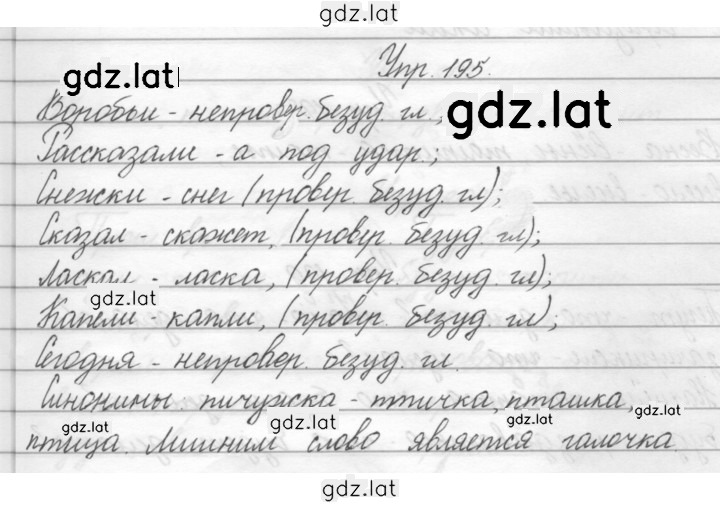 gdz.lat
Упр. 195.
gdz.lat
Воробьи - непровер. безуд. гл.,
gdz.lat
Рассказали - а под удар.;
Снежки - снег (провер. безуд. гл);
Сказал - скажет, (провер. безуд. гл);
Ласкал - ласка, (провер. безуд. гл);
gdz.lat
Капели - капли, (провер. безуд. гл);
Сегодня - непровер. безуд. гл.
Синонимы пичужка - птичка, пташка,
gdz.lat gdz.lat gdz.lat gdz.lat
птица. Лишним слово является галочка.
gdz.lat